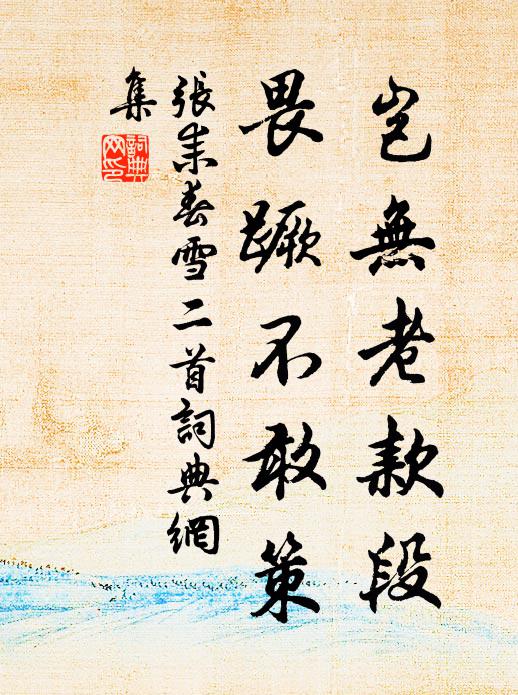 豈無老款段
畏蹶不敢策
張耒春雪二首詞典網
集
詞典
网印